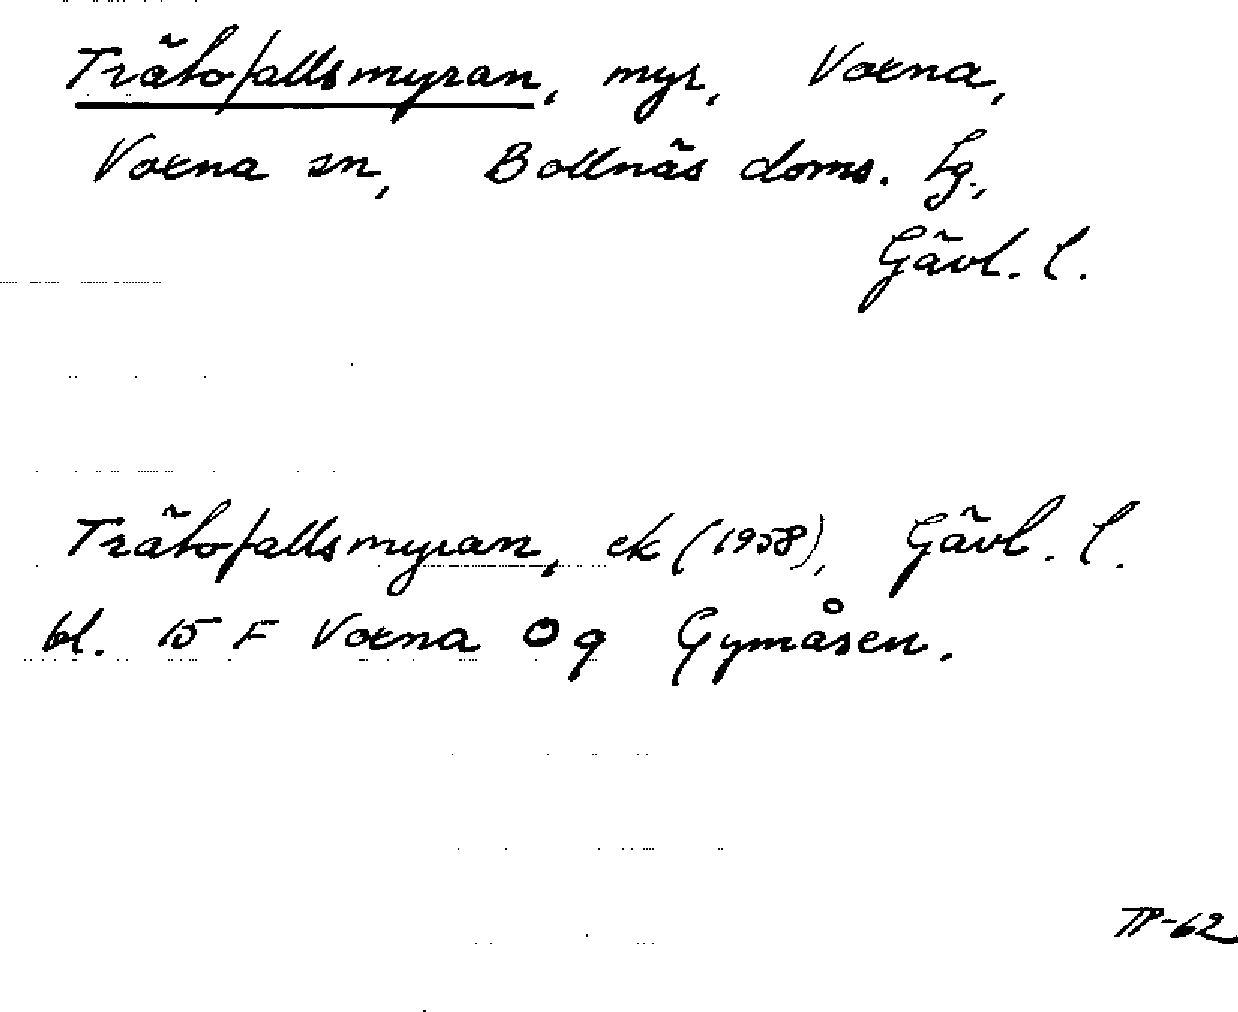 Träbofallsmyran, myr, Voxna,
Voxna sn, Bollnäs doms. tg.,
Gävl. l.
Träbofallsmyran, ek (1958), Gävl. l.
bl. 15 F Voxna 0 g Gymåsen.
TP-62